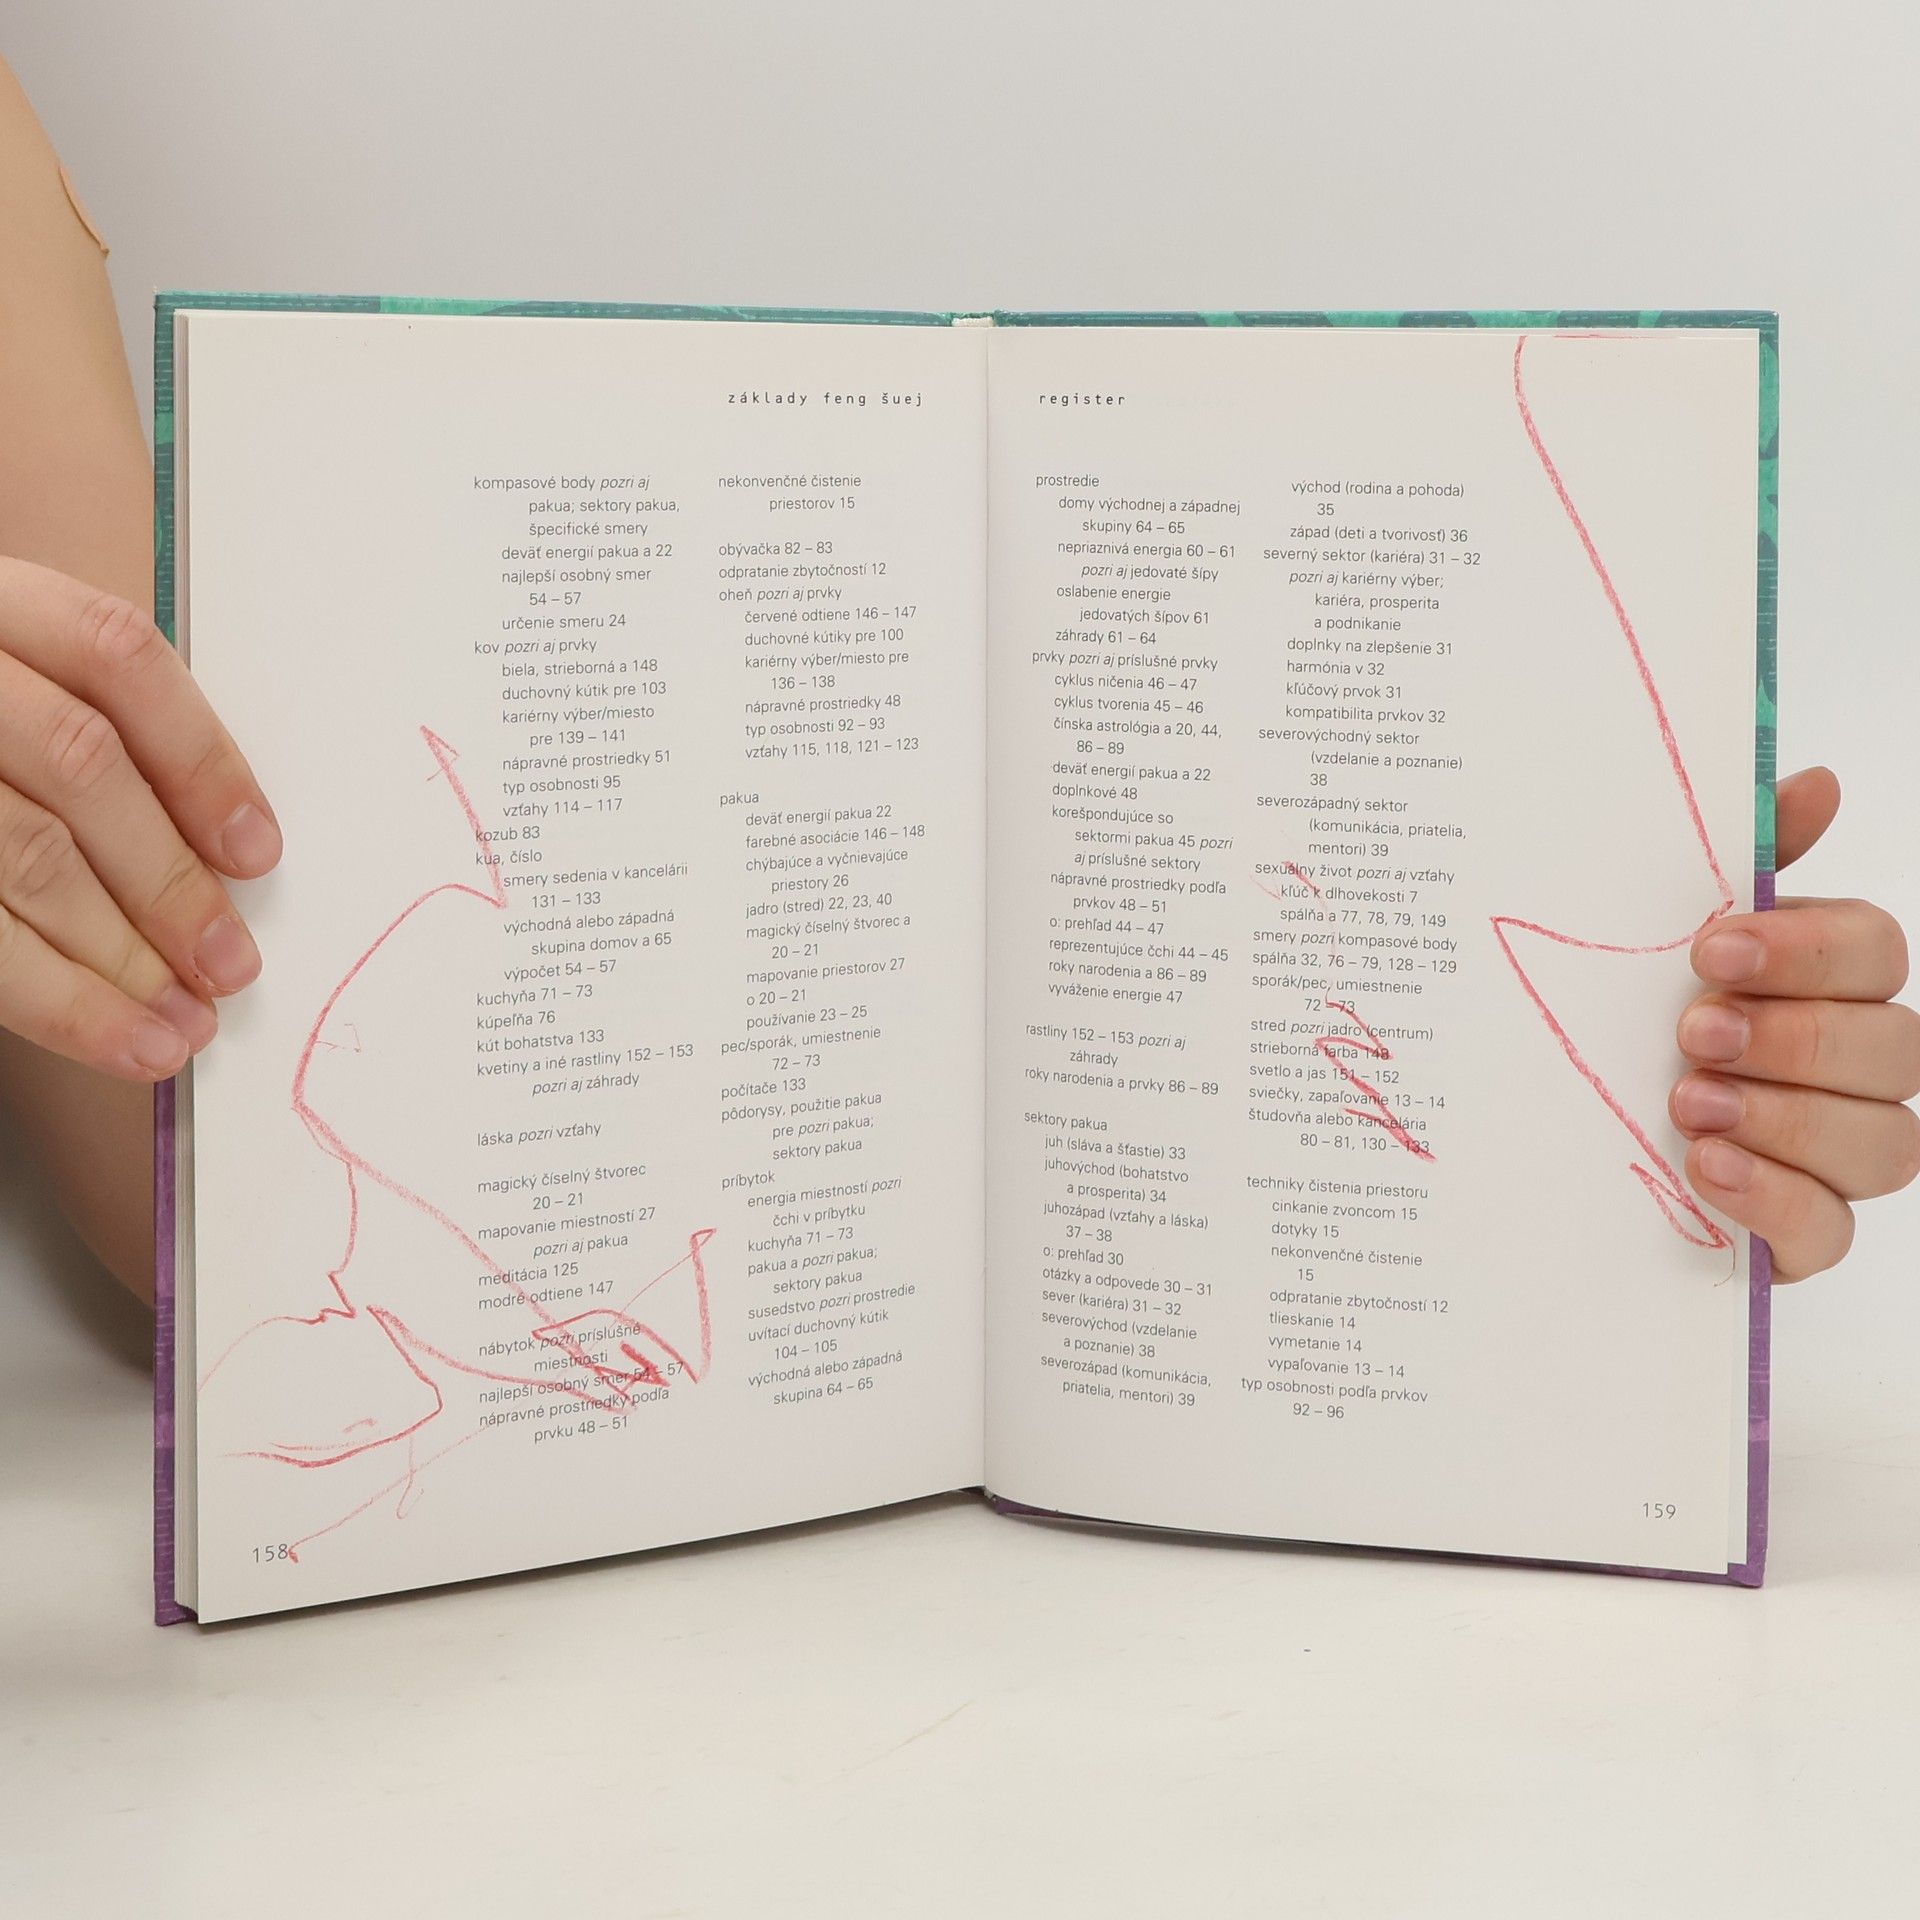 základy feng šuej
kompasové body pozri aj
pakua; sektory pakua,
špecifické smery
deväť energií pakua a 22
najlepší osobný smer
54 – 57
určenie smeru 24
kov pozri aj prvky
biela, strieborná a 148
duchovný kútik pre 103
kariérny výber/miesto
pre 139 – 141
nápravné prostriedky 51
typ osobnosti 95
vzťahy 114 – 117
kozub 83
kua, číslo
smery sedenia v kancelárii
131 – 133
východná alebo západná
skupina domov a 65
výpočet 54 – 57
kuchyňa 71 – 73
kúpeľňa 76
kút bohatstva 133
kvetiny a iné rastliny 152 – 153
pozri aj záhrady
láska pozri vzťahy
magický číselný štvorec
20 – 21
mapovanie miestností 27
pozri aj pakua
meditácia 125
modré odtiene 147
nábytok pozri príslušné
miestnosti
najlepší osobný smer 54 – 57
nápravné prostriedky podľa
prvku 48 – 51
nekonvenčné čistenie
priestorov 15
obývačka 82 – 83
odpratanie zbytočností 12
oheň pozri aj prvky
červené odtiene 146 – 147
duchovné kútiky pre 100
kariérny výber/miesto pre
136 – 138
nápravné prostriedky 48
typ osobnosti 92 – 93
vzťahy 115, 118, 121 – 123
pakua
deväť energií pakua 22
farebné asociácie 146 – 148
chýbajúce a vyčnievajúce
priestory 26
jadro (stred) 22, 23, 40
magický číselný štvorec a
20 – 21
mapovanie priestorov 27
o 20 – 21
používanie 23 – 25
pec/sporák, umiestnenie
72 – 73
počítače 133
pôdorysy, použitie pakua
pre pozri pakua;
sektory pakua
príbytok
energia miestností pozri
čchi v príbytku
kuchyňa 71 – 73
pakua a pozri pakua;
sektory pakua
susedstvo pozri prostredie
uvítací duchovný kútik
104 – 105
východná alebo západná
skupina 64 – 65
158
register
prostredie
domy východnej a západnej
skupiny 64 – 65
nepriaznivá energia 60 – 61
pozri aj jedovaté šípy
oslabenie energie
jedovatých šípov 61
záhrady 61 – 64
prvky pozri aj príslušné prvky
cyklus ničenia 46 – 47
cyklus tvorenia 45 – 46
čínska astrológia a 20, 44,
86 – 89
deväť energií pakua a 22
doplnkové 48
korešpondujúce so
sektormi pakua 45 pozri
aj príslušné sektory
nápravné prostriedky podľa
prvkov 48 – 51
o: prehľad 44 – 47
reprezentujúce čchi 44 – 45
roky narodenia a 86 – 89
vyváženie energie 47
rastliny 152 – 153 pozri aj
záhrady
roky narodenia a prvky 86 – 89
sektory pakua
juh (sláva a šťastie) 33
juhovýchod (bohatstvo
a prosperita) 34
juhozápad (vzťahy a láska)
37 – 38
o: prehľad 30
otázky a odpovede 30 – 31
sever (kariéra) 31 – 32
severovýchod (vzdelanie
a poznanie) 38
severozápad (komunikácia,
priatelia, mentori) 39
východ (rodina a pohoda)
35
západ (deti a tvorivosť) 36
severný sektor (kariéra) 31 – 32
pozri aj kariérny výber;
kariéra, prosperita
a podnikanie
doplnky na zlepšenie 31
harmónia v 32
kľúčový prvok 31
kompatibilita prvkov 32
severovýchodný sektor
(vzdelanie a poznanie)
38
severozápadný sektor
(komunikácia, priatelia,
mentori) 39
sexuálny život pozri aj vzťahy
kľúč k dlhovekosti 7
spálňa a 77, 78, 79, 149
smery pozri kompasové body
spálňa 32, 76 – 79, 128 – 129
sporák/pec, umiestnenie
72 – 73
stred pozri jadro (centrum)
strieborná farba 148
svetlo a jas 151 – 152
sviečky, zapaľovanie 13 – 14
študovňa alebo kancelária
80 – 81, 130 – 133
techniky čistenia priestoru
cinkanie zvoncom 15
dotyky 15
nekonvenčné čistenie
15
odpratanie zbytočností 12
tlieskanie 14
vymetanie 14
vypaľovanie 13 – 14
typ osobnosti podľa prvkov
92 – 96
159